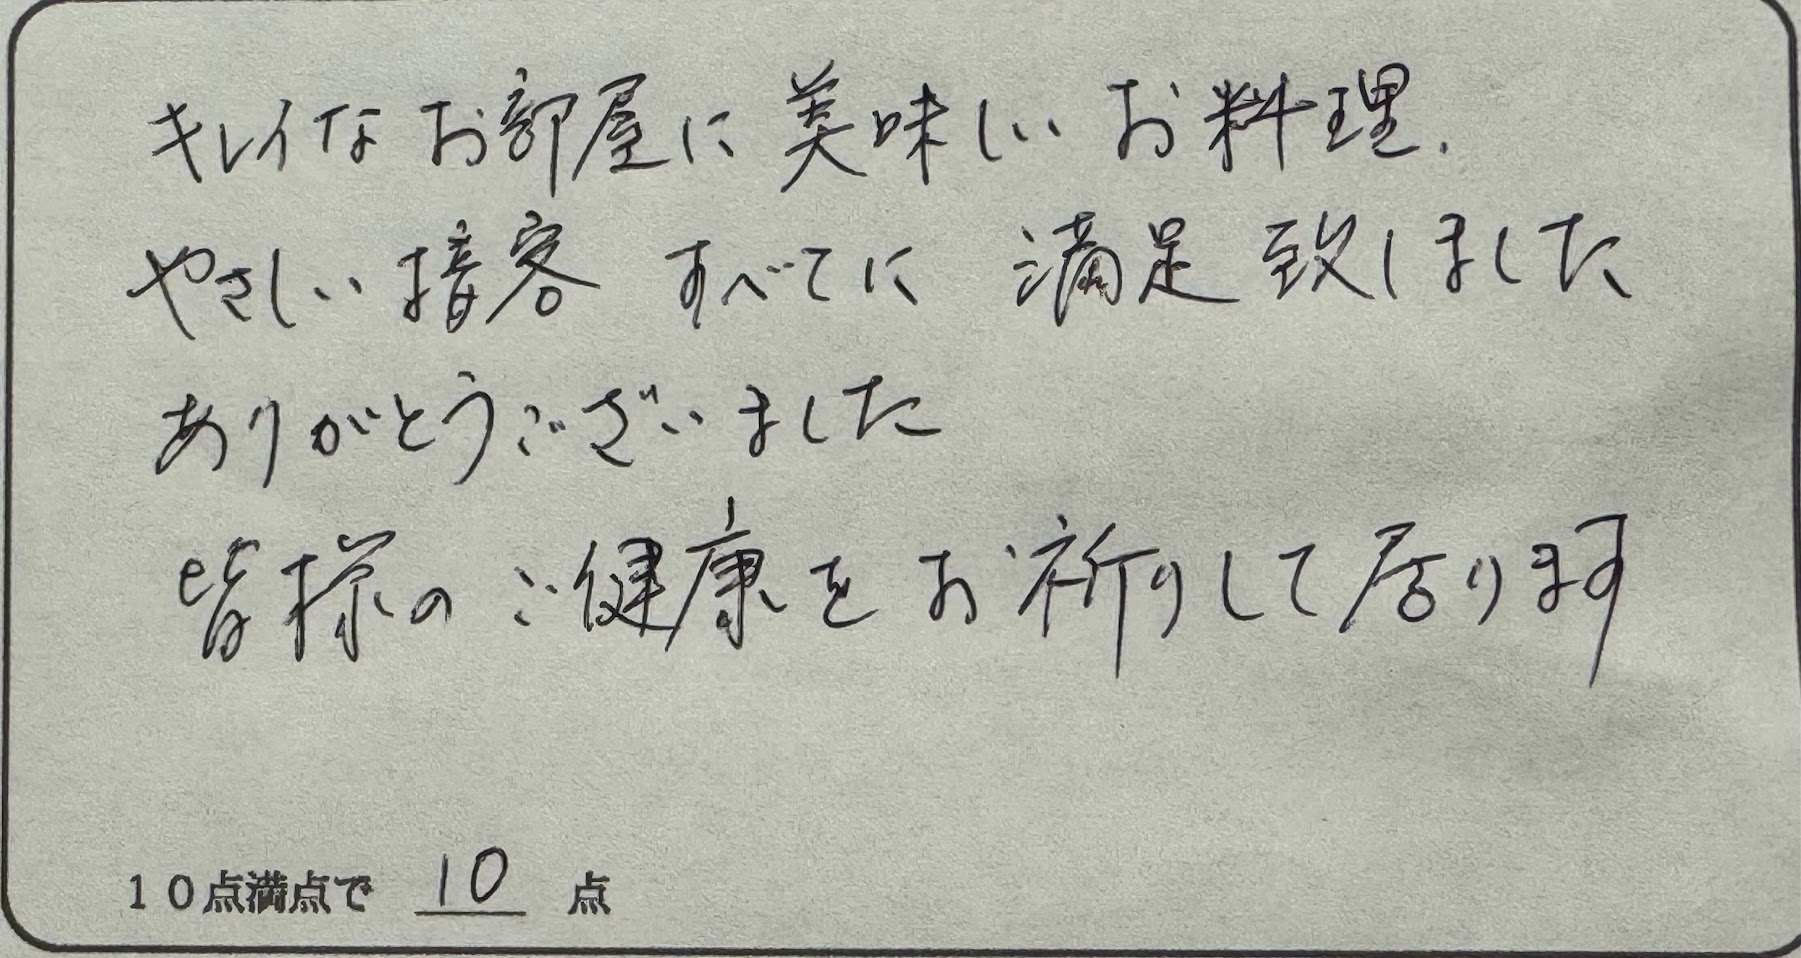 キレイなお部屋に美味しいお料理.
やさしい接客 すべてに 満足致しました
ありがとうございました
皆様のご健康をお祈りして居ります
10点満点で 10 点